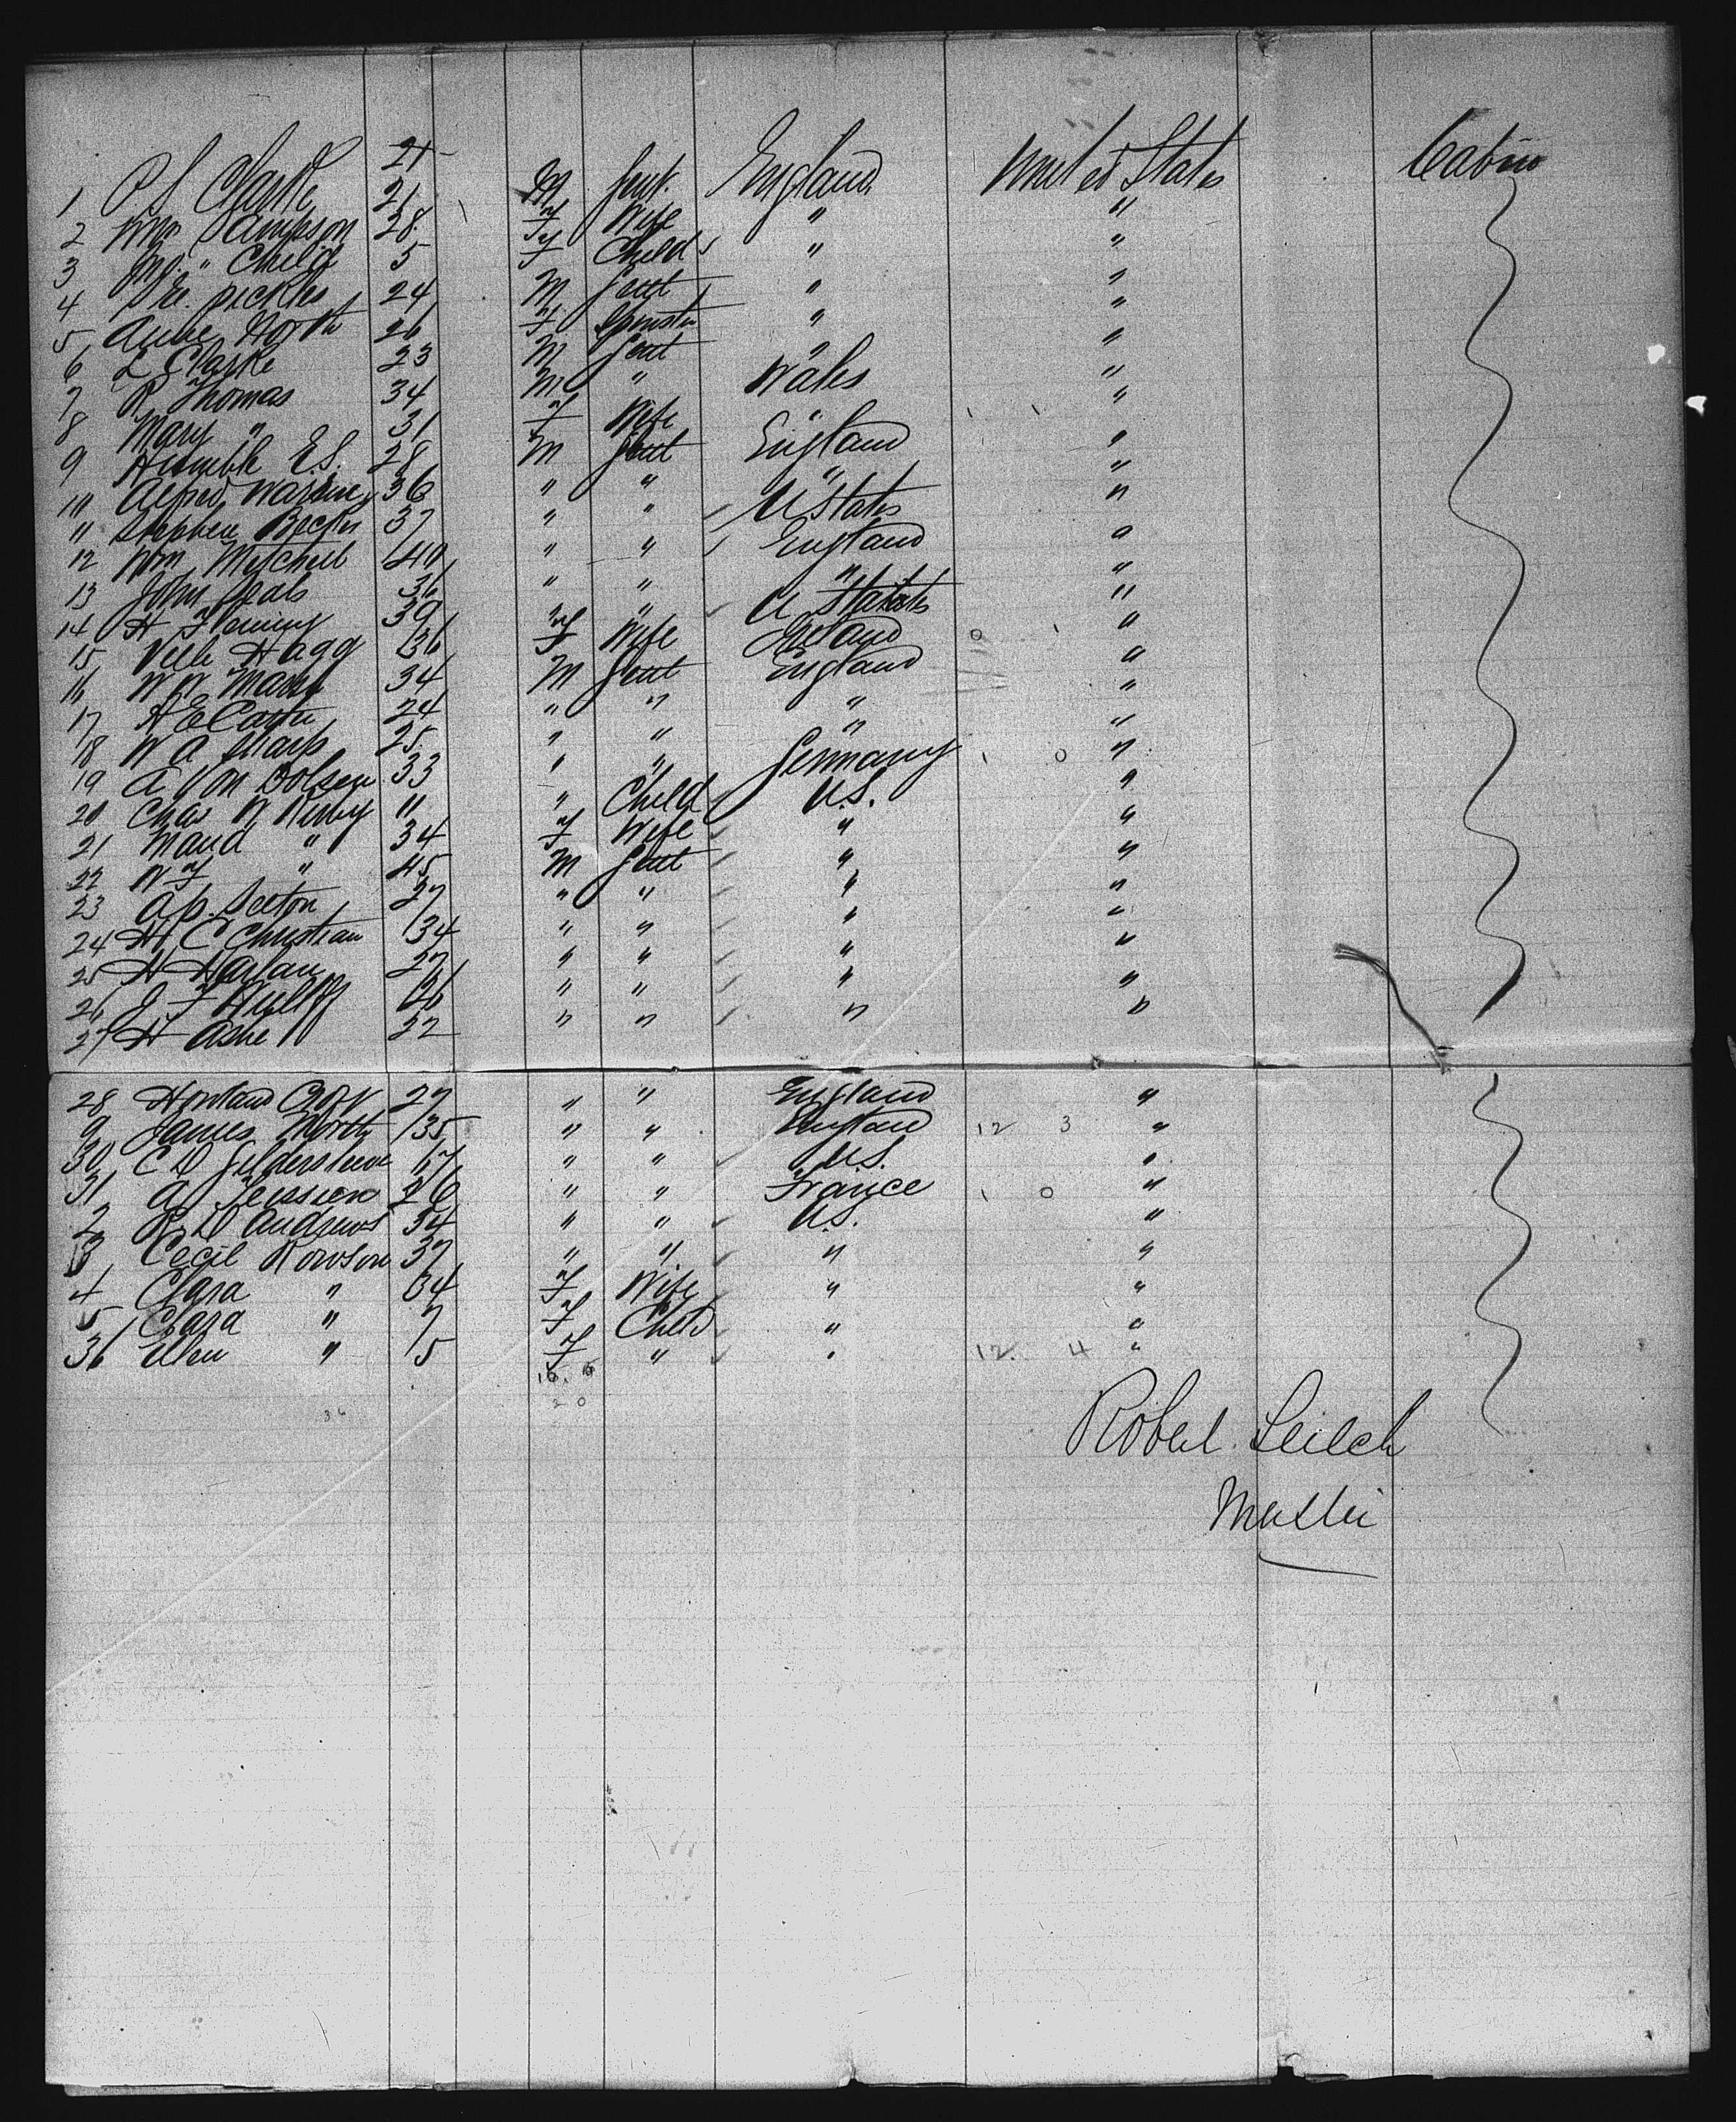 1 P S Clarke 21 M Gent. England United States Cabin
2 Mrs Sampson 28 F Wife " "
3 " Child 5 F Child " "
4 Pickles 24 M Gent " "
5 Annie North 26 F Spinster " "
6 L Clarke 23 M Gent " "
7 R Thomas 34 M " Wales "
8 Mary " 31 F Wife " "
9 Humble E.S. 28 M Gent England "
10 Alfred 36 " " " "
11 Stephen 37 " " U States "
12 Wm Mitchell 40 " " England "
13 John Seals 36 " " " "
14 H Fleming 39 " " U States "
15 Hagg 36 F Wife "
16 W W 34 M Gent England "
17 A E Carter 24 " " " "
18 W A Sharp 25 " " " "
19 A Von 33 " " Germany "
20 Chas W 11 " Child U.S. "
21 Maud " 34 F Wife " "
22 W F " 45 M Gent " "
23 A P. Sexton 27 " " " "
24 H C Christian 34 " " " "
25 H Harlan 27 " " " "
26 J F 26 " " " "
27 H Ashe 22 " " " "
28 27 " " England "
9 James North 35 " " England 12 3 "
30 C D Gildersleeve " " U.S. "
31 A 26 " " France 1 0 "
2 R D Andrews 34 " " U.S. "
3 Cecil Rowson 37 " " " "
4 Clara " 34 F Wife " "
5 Clara " 7 F Child " "
36 Ellen " 5 F " " 12. 4 "
36 20
Robert Leitch
Master